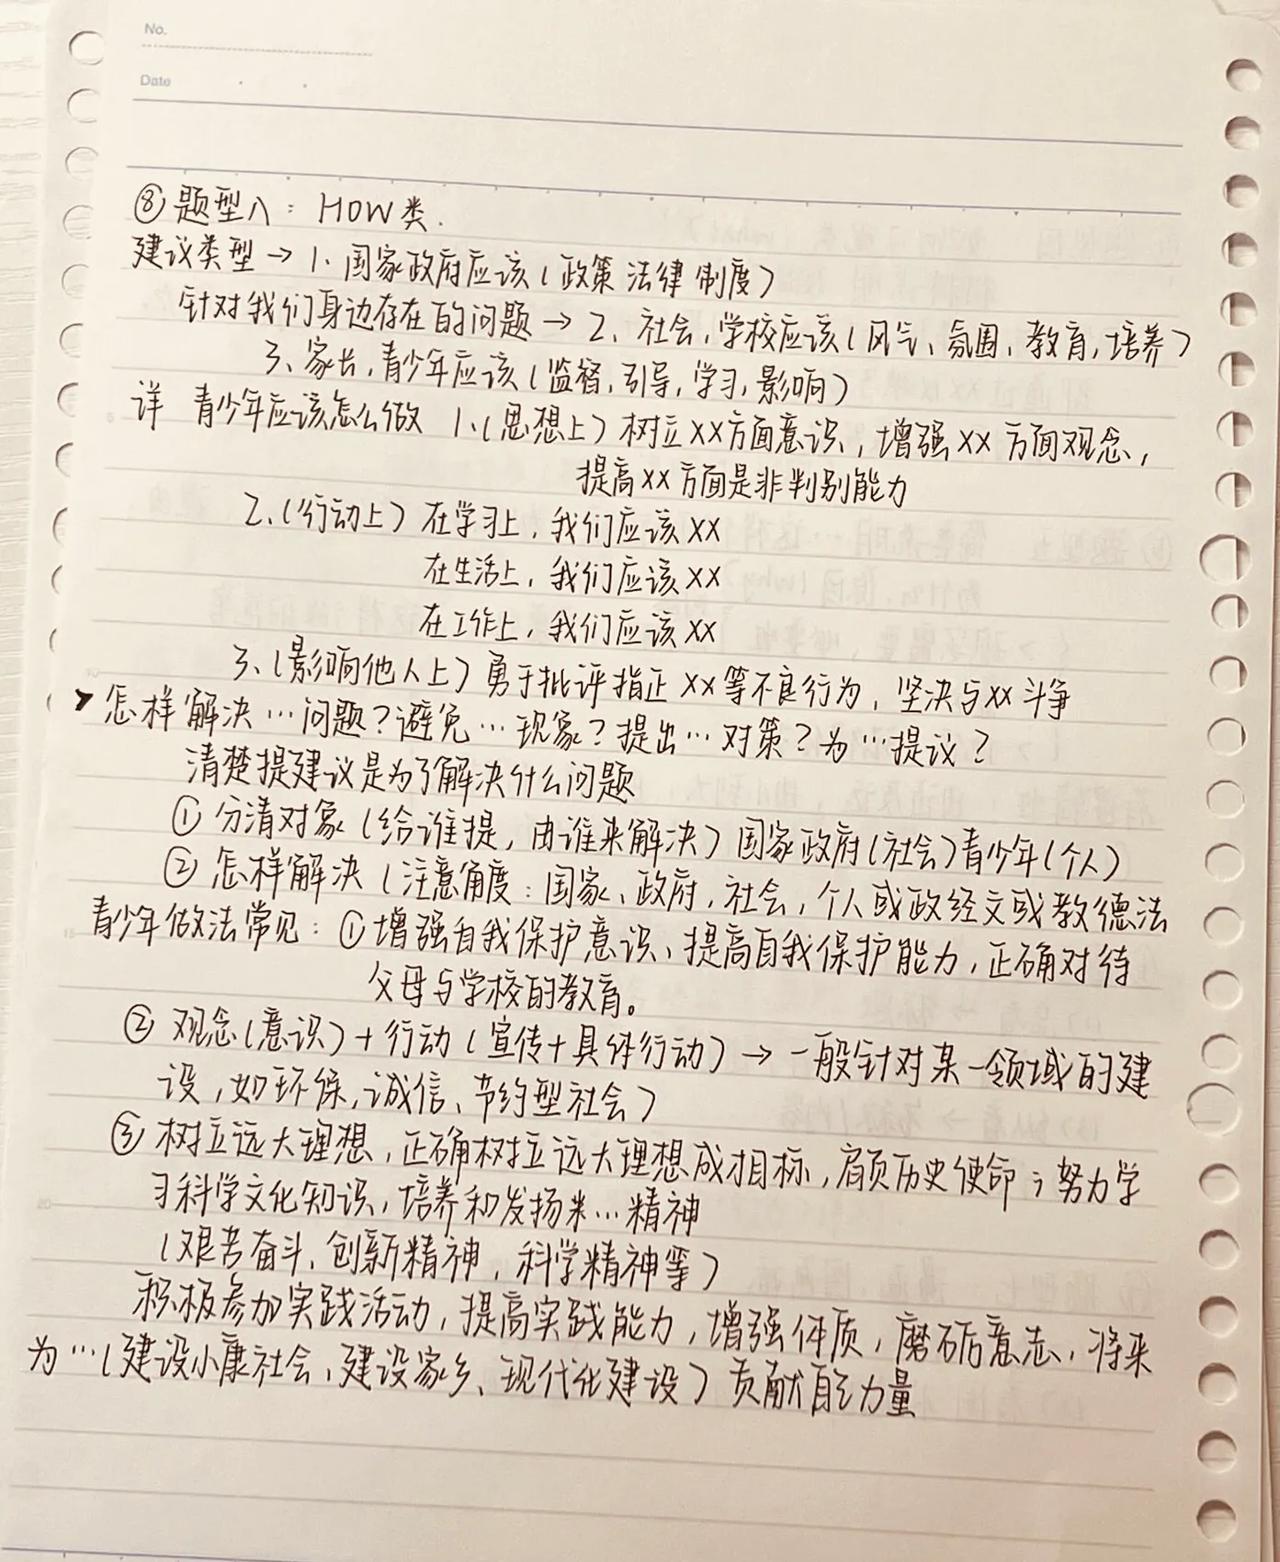 No.
Date
⑧题型八：HOW类.
建议类型→1、国家政府应该(政策 法律 制度)
针对我们身边存在的问题→2、社会,学校应该(风气、氛围、教育,培养)
3、家长,青少年应该(监督,引导,学习,影响)
详 青少年应该怎么做 1、(思想上)树立XX方面意识,增强XX方面观念,
提高XX方面是非判别能力
2、(行动上)在学习上,我们应该XX
在生活上,我们应该XX
在工作上,我们应该XX
3、(影响他人上)勇于批评指正XX等不良行为,坚决与XX斗争
怎样解决…问题?避免…现象?提出…对策?为…提议?
清楚提建议是为了解决什么问题
①分清对象(给谁提,由谁来解决)国家政府(社会)青少年(个人)
②怎样解决(注意角度:国家、政府,社会,个人或政经文或教德法
青少年做法常见:①增强自我保护意识、提高自我保护能力,正确对待
父母与学校的教育。
②观念(意识)+行动(宣传+具体行动)→一般针对某一领域的建
设,如环保,诚信、节约型社会)
③树立远大理想,正确树立远大理想成才目标,肩负历史使命;努力学
习科学文化知识,培养和发扬…精神
(艰苦奋斗,创新精神,科学精神等)
积极参加实践活动,提高实践能力,增强体质,磨砺意志,将来
为…(建设小康社会,建设家乡、现代化建设)贡献自己力量